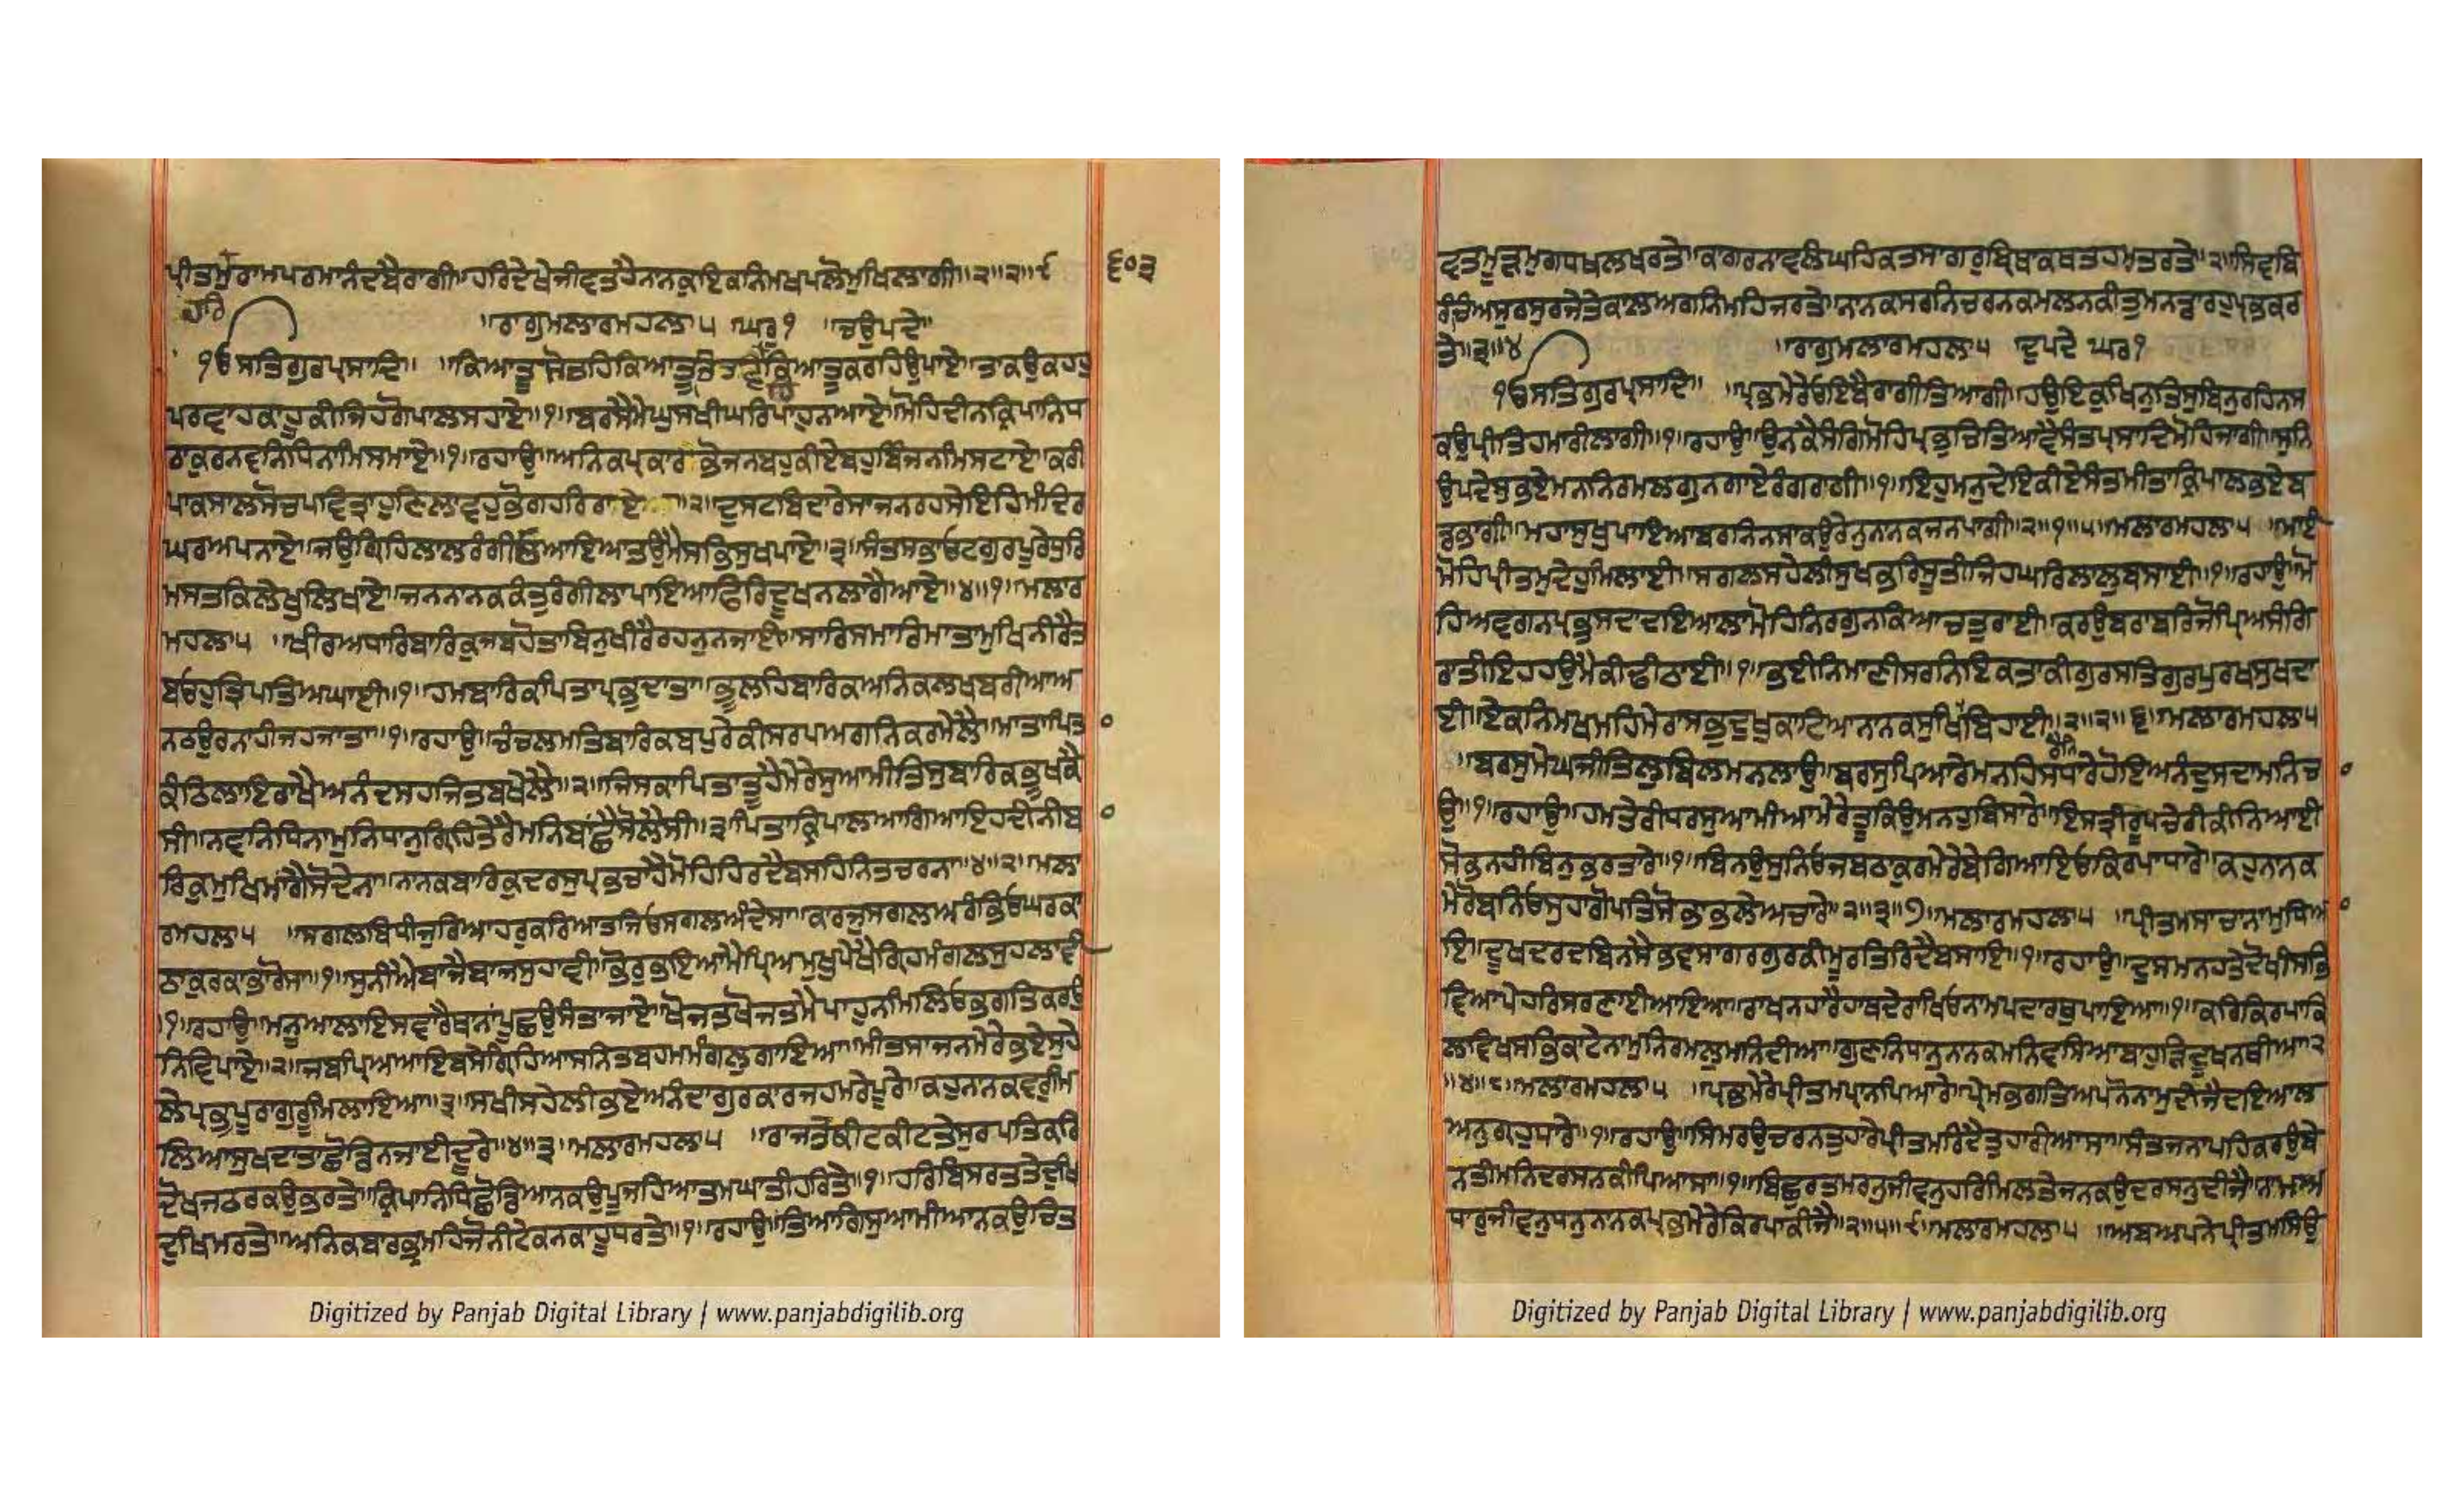 ਪੀਤਮੁਰਾਮਪਰਮਾਨੰਦਬੈਰਾਗੀ॥ਹਰਿਦੇਖੇਜੀਵਤਹੈਨਾਨਕੁਇਕਨਿਮਖਪਲੋਮੁਖਿਲਾਗੀ॥੨॥੨॥੯
੬੦੩
ਹਰਿ
॥ਰਾਗੁਮਲਾਰਮਹਲਾ੫ ਘਰੁ੧ ॥ਚਉਪਦੇ॥
ੴਸਤਿਗੁਰਪ੍ਰਸਾਦਿ॥ ॥ਕਿਆਤੂਸੋਚਹਿਕਿਆਤੂਚਿਤਵਹਿਕਿਆਤੂਕਰਹਿਉਪਾਏ॥ਤਾਕਉਕਹਹੁ
ਪਰਵਾਹਕਾਹੂਕੀਜਿਹਗੋਪਾਲਸਹਾਏ॥੧॥ਬਰਸੈਮੇਘੁਸਖੀਘਰਿਪਾਹੁਨਆਏ॥ਮੋਹਿਦੀਨਕ੍ਰਿਪਾਨਿਧ
ਠਾਕੁਰਨਵਨਿਧਿਨਾਮਿਸਮਾਏ॥੧॥ਰਹਾਉ॥ਅਨਿਕਪ੍ਰਕਾਰਭੋਜਨਬਹੁਕੀਏਬਹੁਬਿੰਜਨਮਿਸਟਾਏ॥ਕਰੀ
ਪਾਕਸਾਲਸੋਚਪਵਿਤ੍ਰਾਹੁਣਿਲਾਵਹੁਭੋਗਹਰਿਰਾਏ॥੨॥ਦੁਸਟਬਿਦਾਰੇਸਾਜਨਰਹਸੇਇਹਿਮੰਦਿਰ
ਘਰਅਪਨਾਏ॥ਜਉਗ੍ਰਿਹਿਲਾਲਰੰਗੀਓਆਇਆਤਉਮੈਸਭਿਸੁਖਪਾਏ॥੩॥ਸੰਤਸਭਾਓਟਗੁਰਪੂਰੇਧੁਰਿ
ਮਸਤਕਿਲੇਖੁਲਿਖਾਏ॥ਜਨਨਾਨਕਕੰਤੁਰੰਗੀਲਾਪਾਇਆਫਿਰਿਦੂਖਨਲਾਗੈਆਏ॥੪॥੧॥ਮਲਾਰ
ਮਹਲਾ੫ ॥ਖੀਰਅਧਾਰਿਬਾਰਿਕੁਜਬਹੋਤਾਬਿਨੁਖੀਰੈਰਹਨੁਨਜਾਈ॥ਸਾਰਿਸਮਾਰਿਮਾਤਾਮੁਖਿਨੀਰੈਤ
ਬਓਹੁਤ੍ਰਿਪਤਿਅਘਾਈ॥੧॥ਹਮਬਾਰਿਕਪਿਤਾਪ੍ਰਭੁਦਾਤਾ॥ਭੂਲਹਿਬਾਰਿਕਅਨਿਕਲਖਬਰੀਆਅ
ਨਠਉਰਨਾਹੀਜਹਜਾਤਾ॥੧॥ਰਹਾਉ॥ਚੰਚਲਮਤਿਬਾਰਿਕਬਪੁਰੇਕੀਸਰਪਅਗਨਿਕਰਮੇਲੈ॥ਮਾਤਾਪਿਤ
ਕੰਠਿਲਾਇਰਾਖੈਅਨੰਦਸਹਜਿਤਬਖੇਲੈ॥੨॥ਜਿਸਕਾਪਿਤਾਤੂਹੈਮੇਰੇਸੁਆਮੀਤਿਸੁਬਾਰਿਕਭੂਖਕੈ
ਸੀ॥ਨਵਨਿਧਿਨਾਮੁਨਿਧਾਨੁਗ੍ਰਿਹਿਤੇਰੈਮਨਿਬਾਂਛੈਸੋਲੈਸੀ॥੩॥ਪਿਤਾਕ੍ਰਿਪਾਲਆਗਿਆਇਹਦੀਨੀਬ
ਰਿਕੁਮੁਖਿਮਾਂਗੈਸੋਦੇਨਾ॥ਨਾਨਕਬਾਰਿਕੁਦਰਸੁਪ੍ਰਭਚਾਹੈਮੋਹਿਹਿਰਦੈਬਸਹਿਨਿਤਚਰਨਾ॥੪॥੨॥ਮਲਾ
ਰਮਹਲਾ੫ ॥ਸਗਲਬਿਧੀਜੁਰਿਆਹਰੁਕਰਿਆਤਜਿਓਸਗਲਅੰਦੇਸਾ॥ਕਾਰਜੁਸਗਲਅਰੰਭਿਓਘਰਕਾ
ਠਾਕੁਰਕਾਭਾਰੋਸਾ॥੧॥ਸੁਨੀਐਬਾਜੈਬਾਜਸੁਹਾਵੀ॥ਭੋਰੁਭਇਆਮੈਪ੍ਰਿਅਮੁਖੁਪੇਖੇਗ੍ਰਿਹਮੰਗਲਸੁਹਲਾਵੀ
॥੧॥ਰਹਾਉ॥ਮਨੂਆਲਾਇਸਵਾਰੇਥਾਨਾਂਪੂਛਉਸੰਤਾਜਾਏ॥ਖੋਜਤਖੋਜਤਮੈਪਾਹੁਨਮਿਲਿਓਭਗਤਿਕਰਉ
ਨਿਵਿਪਾਏ॥੨॥ਜਬਪ੍ਰਿਆਆਇਬਸੇਗ੍ਰਿਹਿਆਸਨਿਤਬਹਮਮੰਗਲੁਗਾਇਆ॥ਮੀਤਸਾਜਨਮੇਰੇਭਏਸੁਹੇ
ਲੇਪ੍ਰਭੁਪੂਰਾਗੁਰੂਮਿਲਾਇਆ॥੩॥ਸਖੀਸਹੇਲੀਭਏਅਨੰਦਾਗੁਰਕਾਰਜਹਮਰੇਪੂਰੇ॥ਕਹੁਨਾਨਕਵਰੁਮਿ
ਲਿਆਸੁਖਦਾਤਾਛੋਡਿਨਜਾਈਦੂਰੇ॥੪॥੩॥ਮਲਾਰਮਹਲਾ੫ ॥ਰਾਜਤੇਕੀਟਕੀਟਤੇਸੁਰਪਤਿਕਰਿ
ਦੋਖਜਠਰਕਉਭਰਤੇ॥ਕ੍ਰਿਪਾਨਿਧਿਛੋਡਿਆਨਕਉਪੂਜਹਿਆਤਮਘਾਤੀਹਰਤੇ॥੧॥ਹਰਿਬਿਸਰਤਤੇਦੁਖਿ
ਦੁਖਿਮਰਤੇ॥ਅਨਿਕਬਾਰਭ੍ਰਮਹਿਜੋਨੀਟੇਕਨਕਾਹੂਧਰਤੇ॥੧॥ਰਹਾਉ॥ਤਿਆਗਿਸੁਆਮੀਆਨਕਉਚਿਤ
ਵਤਮੂੜਮੁਗਧਖਲਖਰਤੇ॥ਕਾਗਰਨਾਵਲੰਘਹਿਕਤਸਾਗਰੁਬ੍ਰਿਥਾਕਥਤਹਮਤਰਤੇ॥੨॥ਸਿਵਬਿ
ਰੰਚਿਅਸੁਰਸੁਰਜੇਤੇਕਾਲਅਗਨਿਮਹਿਜਰਤੇ॥ਨਾਨਕਸਰਨਿਚਰਨਕਮਲਨਕੀਤੁਮਨਡਾਰਹੁਪ੍ਰਭਕਰ
ਤੇ॥੩॥੪ ॥ਰਾਗੁਮਲਾਰਮਹਲਾ੫ ਦੁਪਦੇ ਘਰੁ੧
ੴਸਤਿਗੁਰਪ੍ਰਸਾਦਿ॥ ॥ਪ੍ਰਭਮੇਰੇਓਇਬੈਰਾਗੀਤਿਆਗੀ॥ਹਉਇਕੁਖਿਨੁਤਿਸੁਬਿਨੁਰਹਿਨਸ
ਕਉਪ੍ਰੀਤਿਹਮਾਰੀਲਾਗੀ॥੧॥ਰਹਾਉ॥ਉਨਕੈਸੰਗਿਮੋਹਿਪ੍ਰਭੁਚਿਤਿਆਵੈਸੰਤਪ੍ਰਸਾਦਿਮੋਹਿਜਾਗੀ॥ਸੁਨਿ
ਉਪਦੇਸੁਭਏਮਨਨਿਰਮਲਗੁਨਗਾਏਰੰਗਰਾਗੀ॥੧॥ਇਹੁਮਨੁਦੇਇਕੀਏਸੰਤਮੀਤਾਕ੍ਰਿਪਾਲਭਏਬ
ਡਭਾਗੀ॥ਮਹਾਸੁਖੁਪਾਇਆਬਰਨਿਨਸਾਕਉਰੇਨੁਨਾਨਕਜਨਪਾਗੀ॥੨॥੧॥੫॥ਮਲਾਰਮਹਲਾ੫ ॥ਮਾਈ
ਮੋਹਿਪ੍ਰੀਤਮੁਦੇਹੁਮਿਲਾਈ॥ਸਗਲਸਹੇਲੀਸੁਖਭਰਿਸੂਤੀਜਿਹਘਰਿਲਾਲੁਬਸਾਈ॥੧॥ਰਹਾਉ॥ਮੋ
ਹਿਅਵਗਨਪ੍ਰਭੁਸਦਾਦਇਆਲਾਮੋਹਿਨਿਰਗੁਨਕਿਆਚਤੁਰਾਈ॥ਕਰਉਬਰਾਬਰਿਜੋਪ੍ਰਿਅਸੰਗਿ
ਰਾਤੀਇਹਹਉਮੈਕੀਢੀਠਾਈ॥੧॥ਭਈਨਿਮਾਣੀਸਰਨਿਇਕਤਾਕੀਗੁਰਸਤਿਗੁਰਪੁਰਖਸੁਖਦਾ
ਈ॥ਏਕਨਿਮਖਮਹਿਮੇਰਾਸਭੁਦੁਖੁਕਾਟਿਆਨਾਨਕਸੁਖਿਬਿਹਾਈ॥੨॥੨॥੬॥ਮਲਾਰਮਹਲਾ੫
ਰੈਨਿ
॥ਬਰਸੁਮੇਘਜੀਤਿਲੁਬਿਲਮਨਲਾਉ॥ਬਰਸੁਪਿਆਰੇਮਨਹਿਸਧਾਰੇਹੋਇਅਨੰਦੁਸਦਾਮਨਿਚ
ਉ॥੧॥ਰਹਾਉ॥ਹਮਤੇਰੀਧਰਸੁਆਮੀਆਮੇਰੇਤੂਕਿਉਮਨਹੁਬਿਸਾਰੇ॥ਇਸਤ੍ਰੀਰੂਪਚੇਰੀਕੀਨਿਆਈ
ਸੋਭਨਹੀਬਿਨੁਭਰਤਾਰੇ॥੧॥ਬਿਨਉਸੁਨਿਓਜਬਠਾਕੁਰਮੇਰੇਬੇਗਿਆਇਓਕਿਰਪਾਧਾਰੇ॥ਕਹੁਨਾਨਕ
ਮੇਰੋਬਨਿਓਸੁਹਾਗੋਪਤਿਸੋਭਾਭਲੇਅਚਾਰੇ॥੨॥੩॥੭॥ਮਲਾਰਮਹਲਾ੫ ॥ਪ੍ਰੀਤਮਸਾਚਾਨਾਮੁਧਿਅ
ਇ॥ਦੂਖਦਰਦਬਿਨਸੈਭਵਸਾਗਰਗੁਰਕੀਮੂਰਤਿਰਿਦੈਬਸਾਇ॥੧॥ਰਹਾਉ॥ਦੁਸਮਨਹਤੇਦੋਖੀਸਭਿ
ਵਿਆਪੇਹਰਿਸਰਣਾਈਆਇਆ॥ਰਾਖਨਹਾਰੈਹਾਥਦੇਰਾਖਿਓਨਾਮਪਦਾਰਥੁਪਾਇਆ॥੧॥ਕਰਿਕਿਰਪਾਕਿ
ਲਵਿਖਸਭਿਕਾਟੇਨਾਮੁਨਿਰਮਲੁਮਨਿਦੀਆ॥ਗੁਣਨਿਧਾਨੁਨਾਨਕਮਨਿਵਸਿਆਬਾਹੁੜਿਦੂਖਨਥੀਆ॥੨
॥੪॥੮॥ਮਲਾਰਮਹਲਾ੫ ॥ਪ੍ਰਭਮੇਰੇਪ੍ਰੀਤਮਪ੍ਰਾਨਪਿਆਰੇ॥ਪ੍ਰੇਮਭਗਤਿਅਪਨੋਨਾਮੁਦੀਜੈਦਇਆਲ
ਅਨੁਗ੍ਰਹੁਧਾਰੇ॥੧॥ਰਹਾਉ॥ਸਿਮਰਉਚਰਨਤੁਹਾਰੇਪ੍ਰੀਤਮਰਿਦੈਤੁਹਾਰੀਆਸਾ॥ਸੰਤਜਨਾਪਹਿਕਰਉਬੇ
ਨਤੀਮਨਿਦਰਸਨਕੀਪਿਆਸਾ॥੧॥ਬਿਛੁਰਤਮਰਨੁਜੀਵਨੁਹਰਿਮਿਲਤੇਜਨਕਉਦਰਸਨੁਦੀਜੈ॥ਨਾਮਅ
ਧਾਰੁਜੀਵਨੁਧਨੁਨਾਨਕਪ੍ਰਭਮੇਰੇਕਿਰਪਾਕੀਜੈ॥੨॥੫॥੯॥ਮਲਾਰਮਹਲਾ੫ ॥ਅਬਅਪਨੇਪ੍ਰੀਤਮਸਿਉ
Digitized by Panjab Digital Library | www.panjabdigilib.org
Digitized by Panjab Digital Library | www.panjabdigilib.org